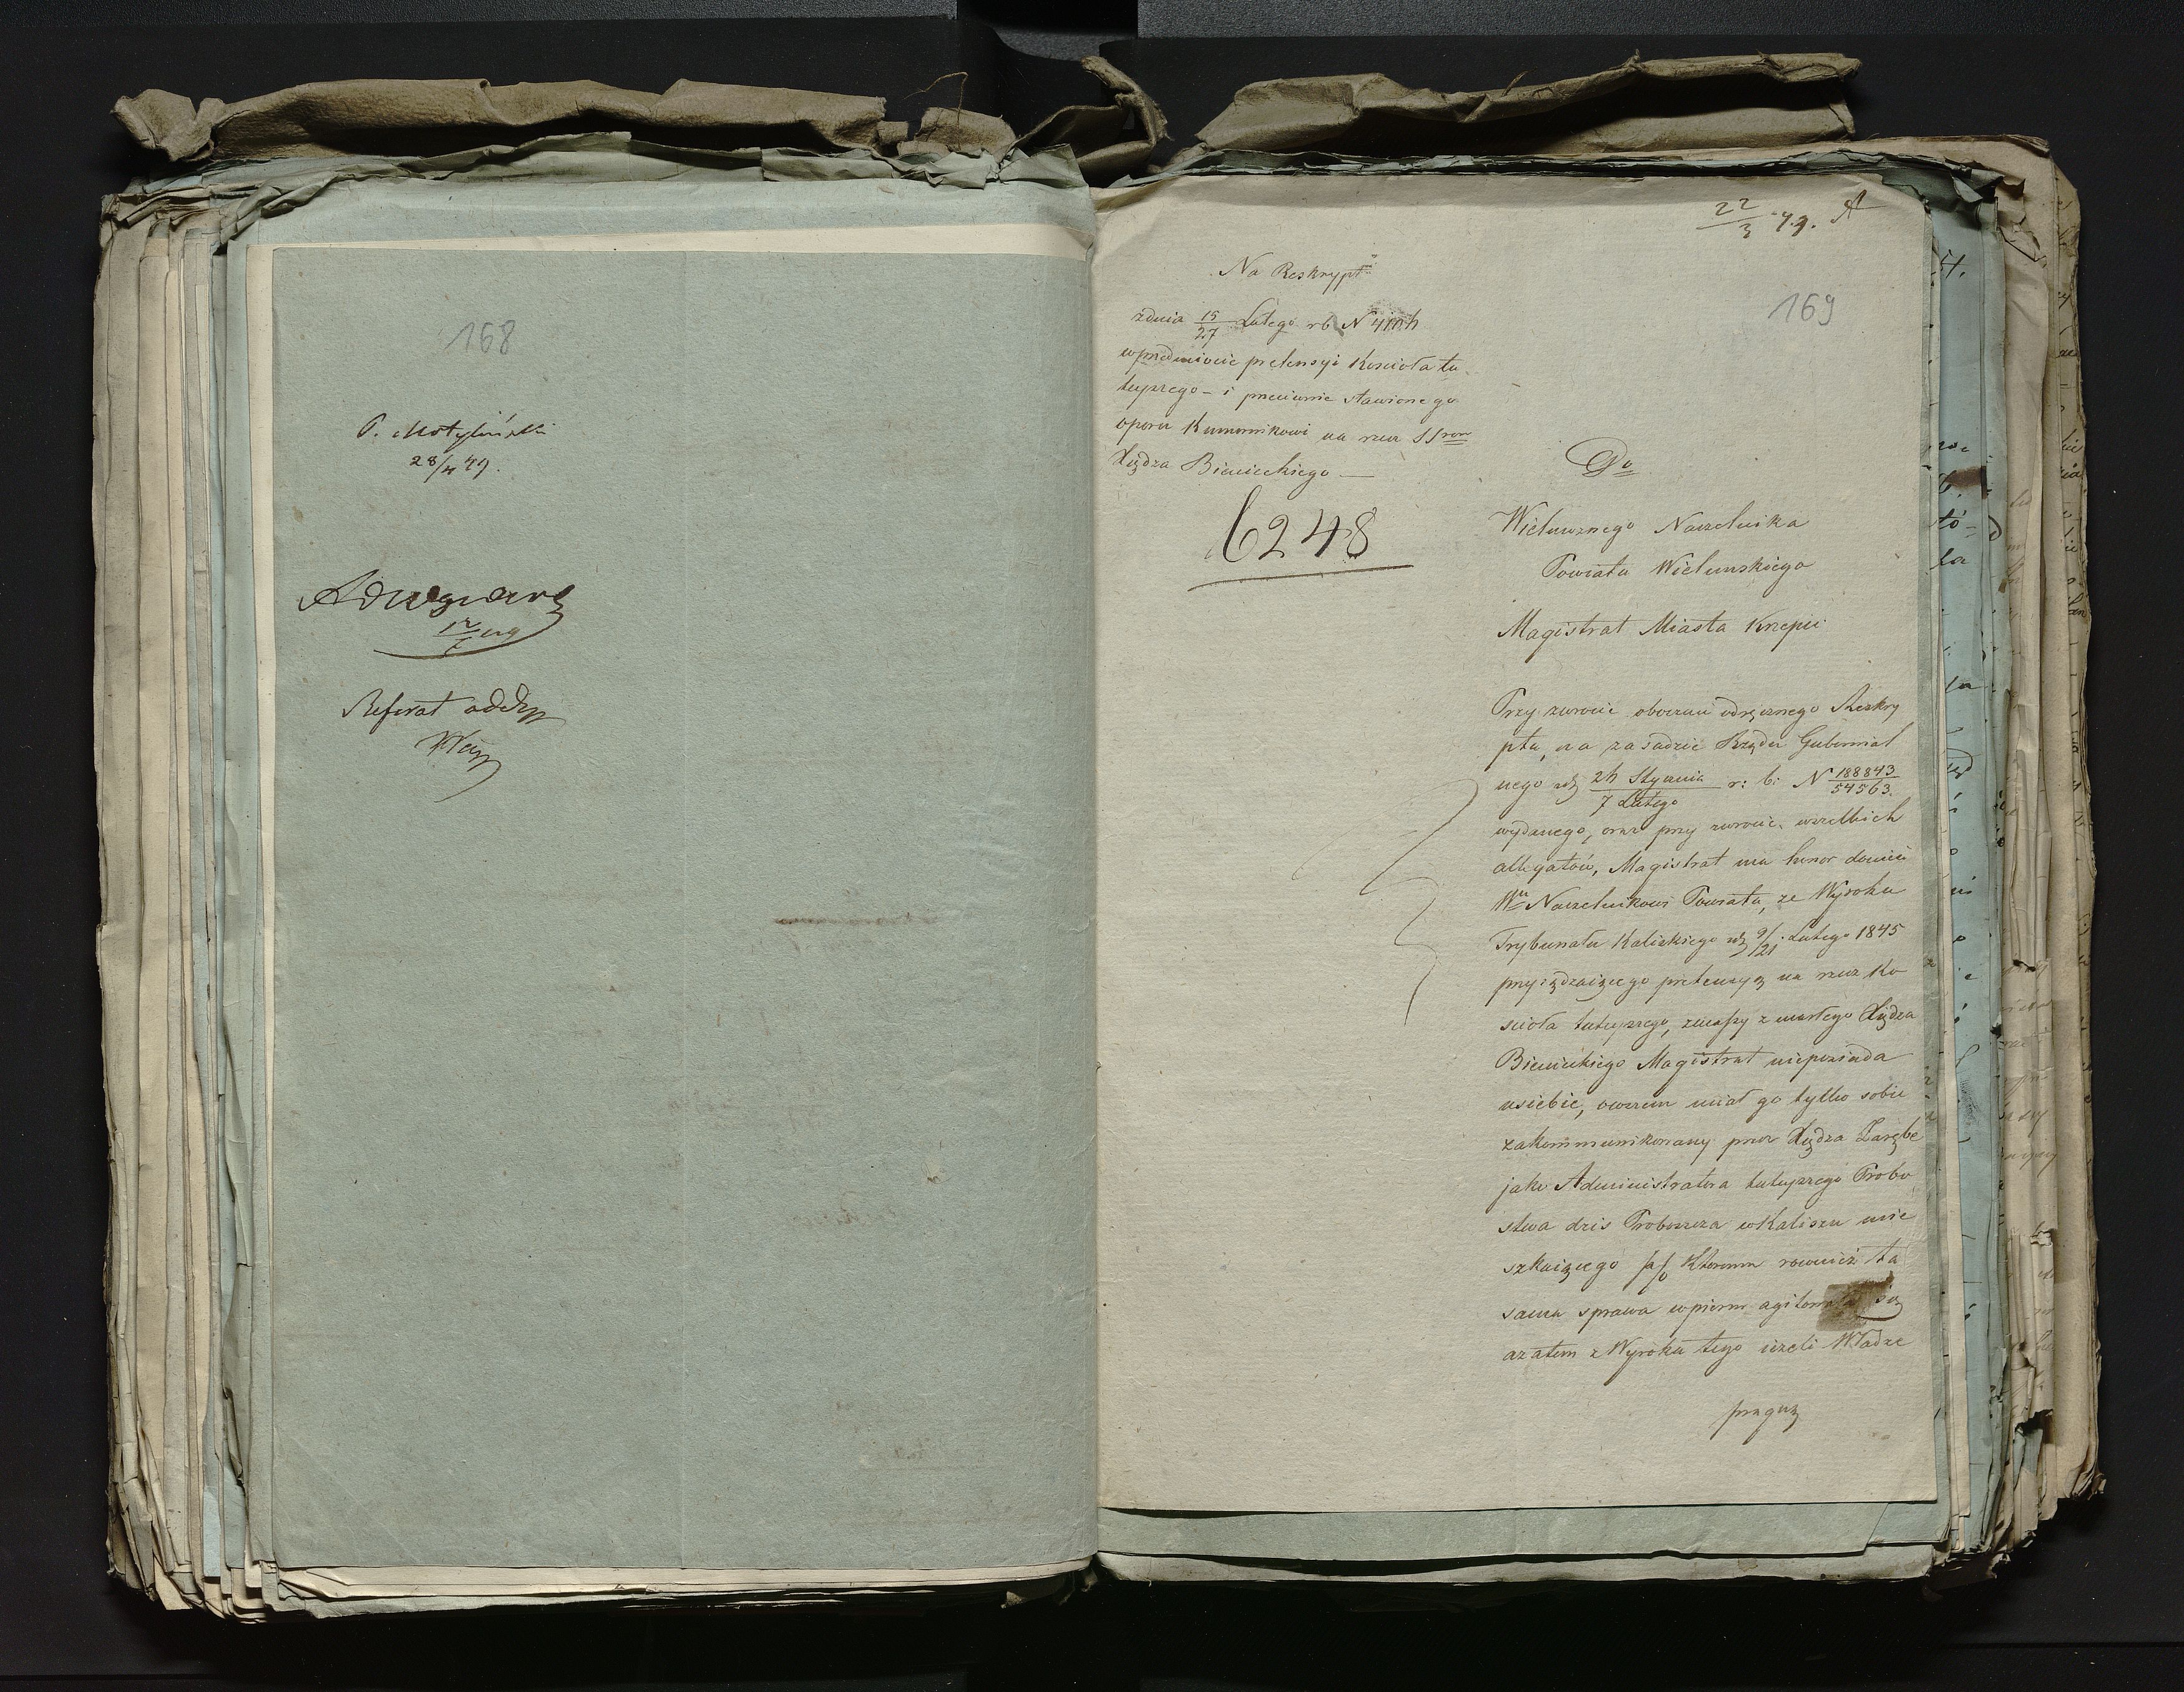 168
P. Motyliński
28/4 49.
Referat
22/3 49.
169
Na Reskrypt
zdnia 15/27 Lutego rb N
wprzedmiocie pretensyi Kościoła tu
teyszego - i przeciwnie stawionego
oporu Kommornikowi na rzecz
Xiędza Bienieckiego —
6248
Do
Wielmożnego Naczelnika
Powiatu Wieluńskiego
Magistrat Miasta Krzepic
Przy zwrocie oboczni odręcznego Reskry
ptu, na zasadzie Rządu Gubernial
nego zd 26 Stycznia / 7 Lutego r: b: N 188843/54563.
wydanego, oraz przy zwrocie wszelkich
allegatów, Magistrat ma honor donieść
Wmu Naczelnikowi Powiatu, że Wyroku
Trybunału Kaliskiego zd 9/21 Lutego 1845
przysądzaiącego pretensyą na rzecz Ko
scioła tuteyszego, zmassy zmarłego Xiędza
Bienieckiego Magistrat nieposiada
usiebie, owszem miał go tylko sobie
zakommunikowany przez Xiędza Zarębe
jako Administratora tuteyszego Probo
stwa dzis Proboszcza w Kaliszu mie
szkaiącego któremu rownież ta
sama sprawa wpierw agitowała się
azatem z Wyroku tego ieżeli Władze
pragną